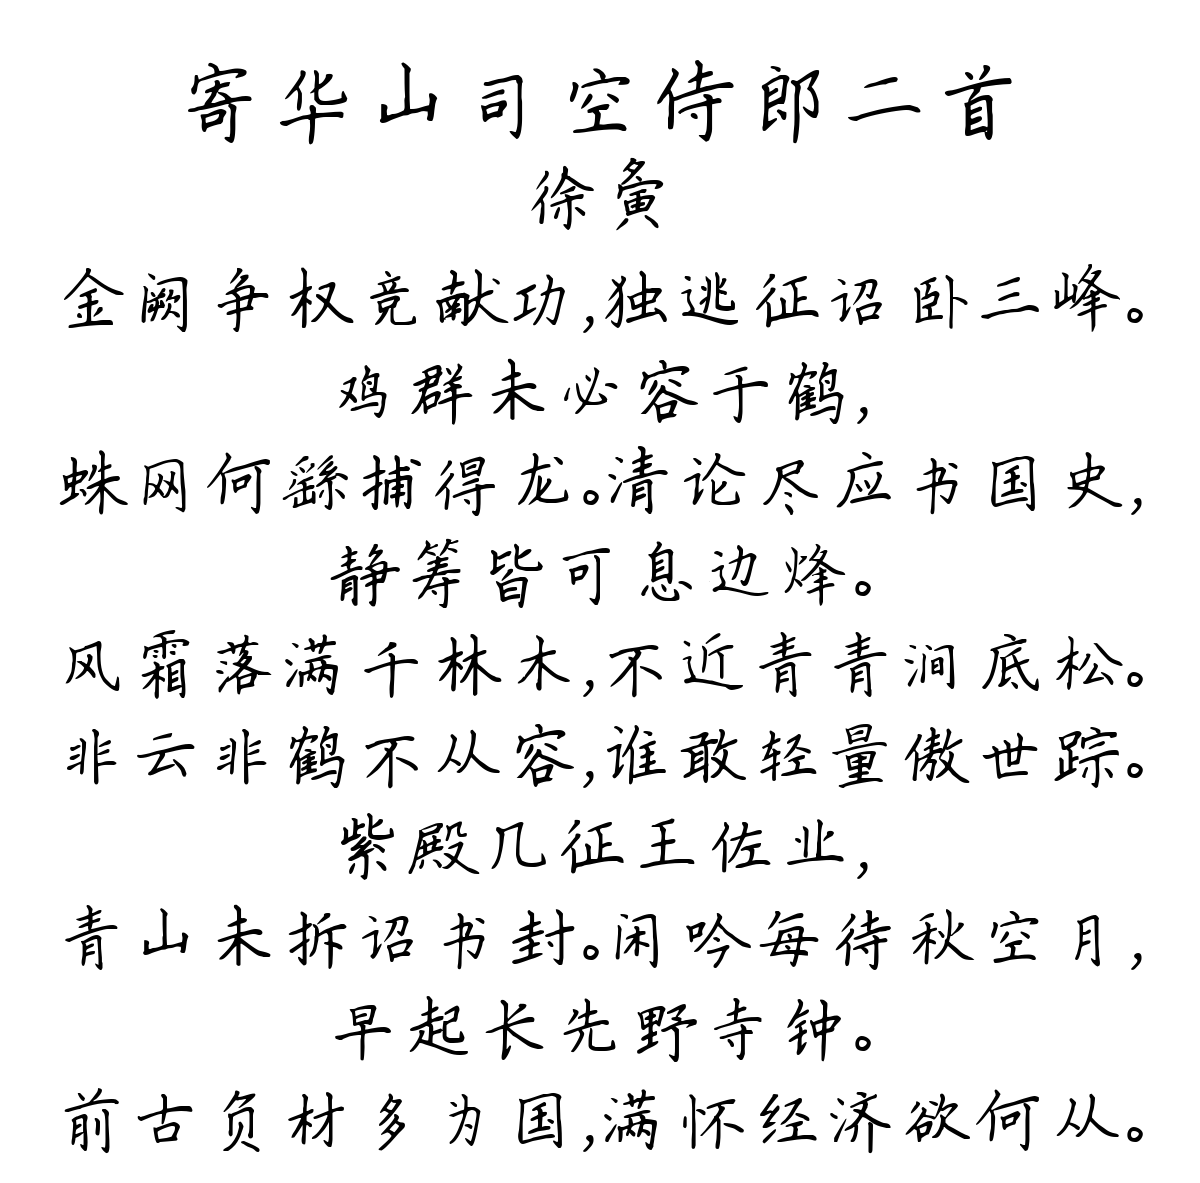 寄华山司空侍郎二首
徐夤
金阙争权竞献功,独逃征诏卧三峰。
鸡群未必容于鹤,
蛛网何繇捕得龙。清论尽应书国史,
静筹皆可息边烽。
风霜落满千林木,不近青青涧底松。
非云非鹤不从容,谁敢轻量傲世踪。
紫殿几征王佐业,
青山未拆诏书封。闲吟每待秋空月,
早起长先野寺钟。
前古负材多为国,满怀经济欲何从。